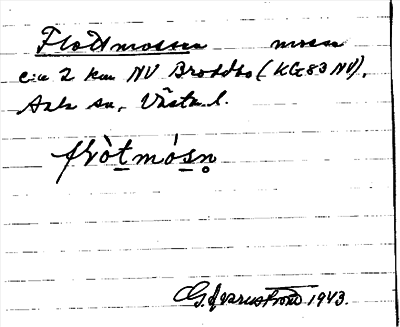 Flottmossen mosse
c:a 2 km NV Broddbo (KG 83 NV),
Sala sn, Västm. l.
flòtmósn̥
G. Kvarnström 1943.